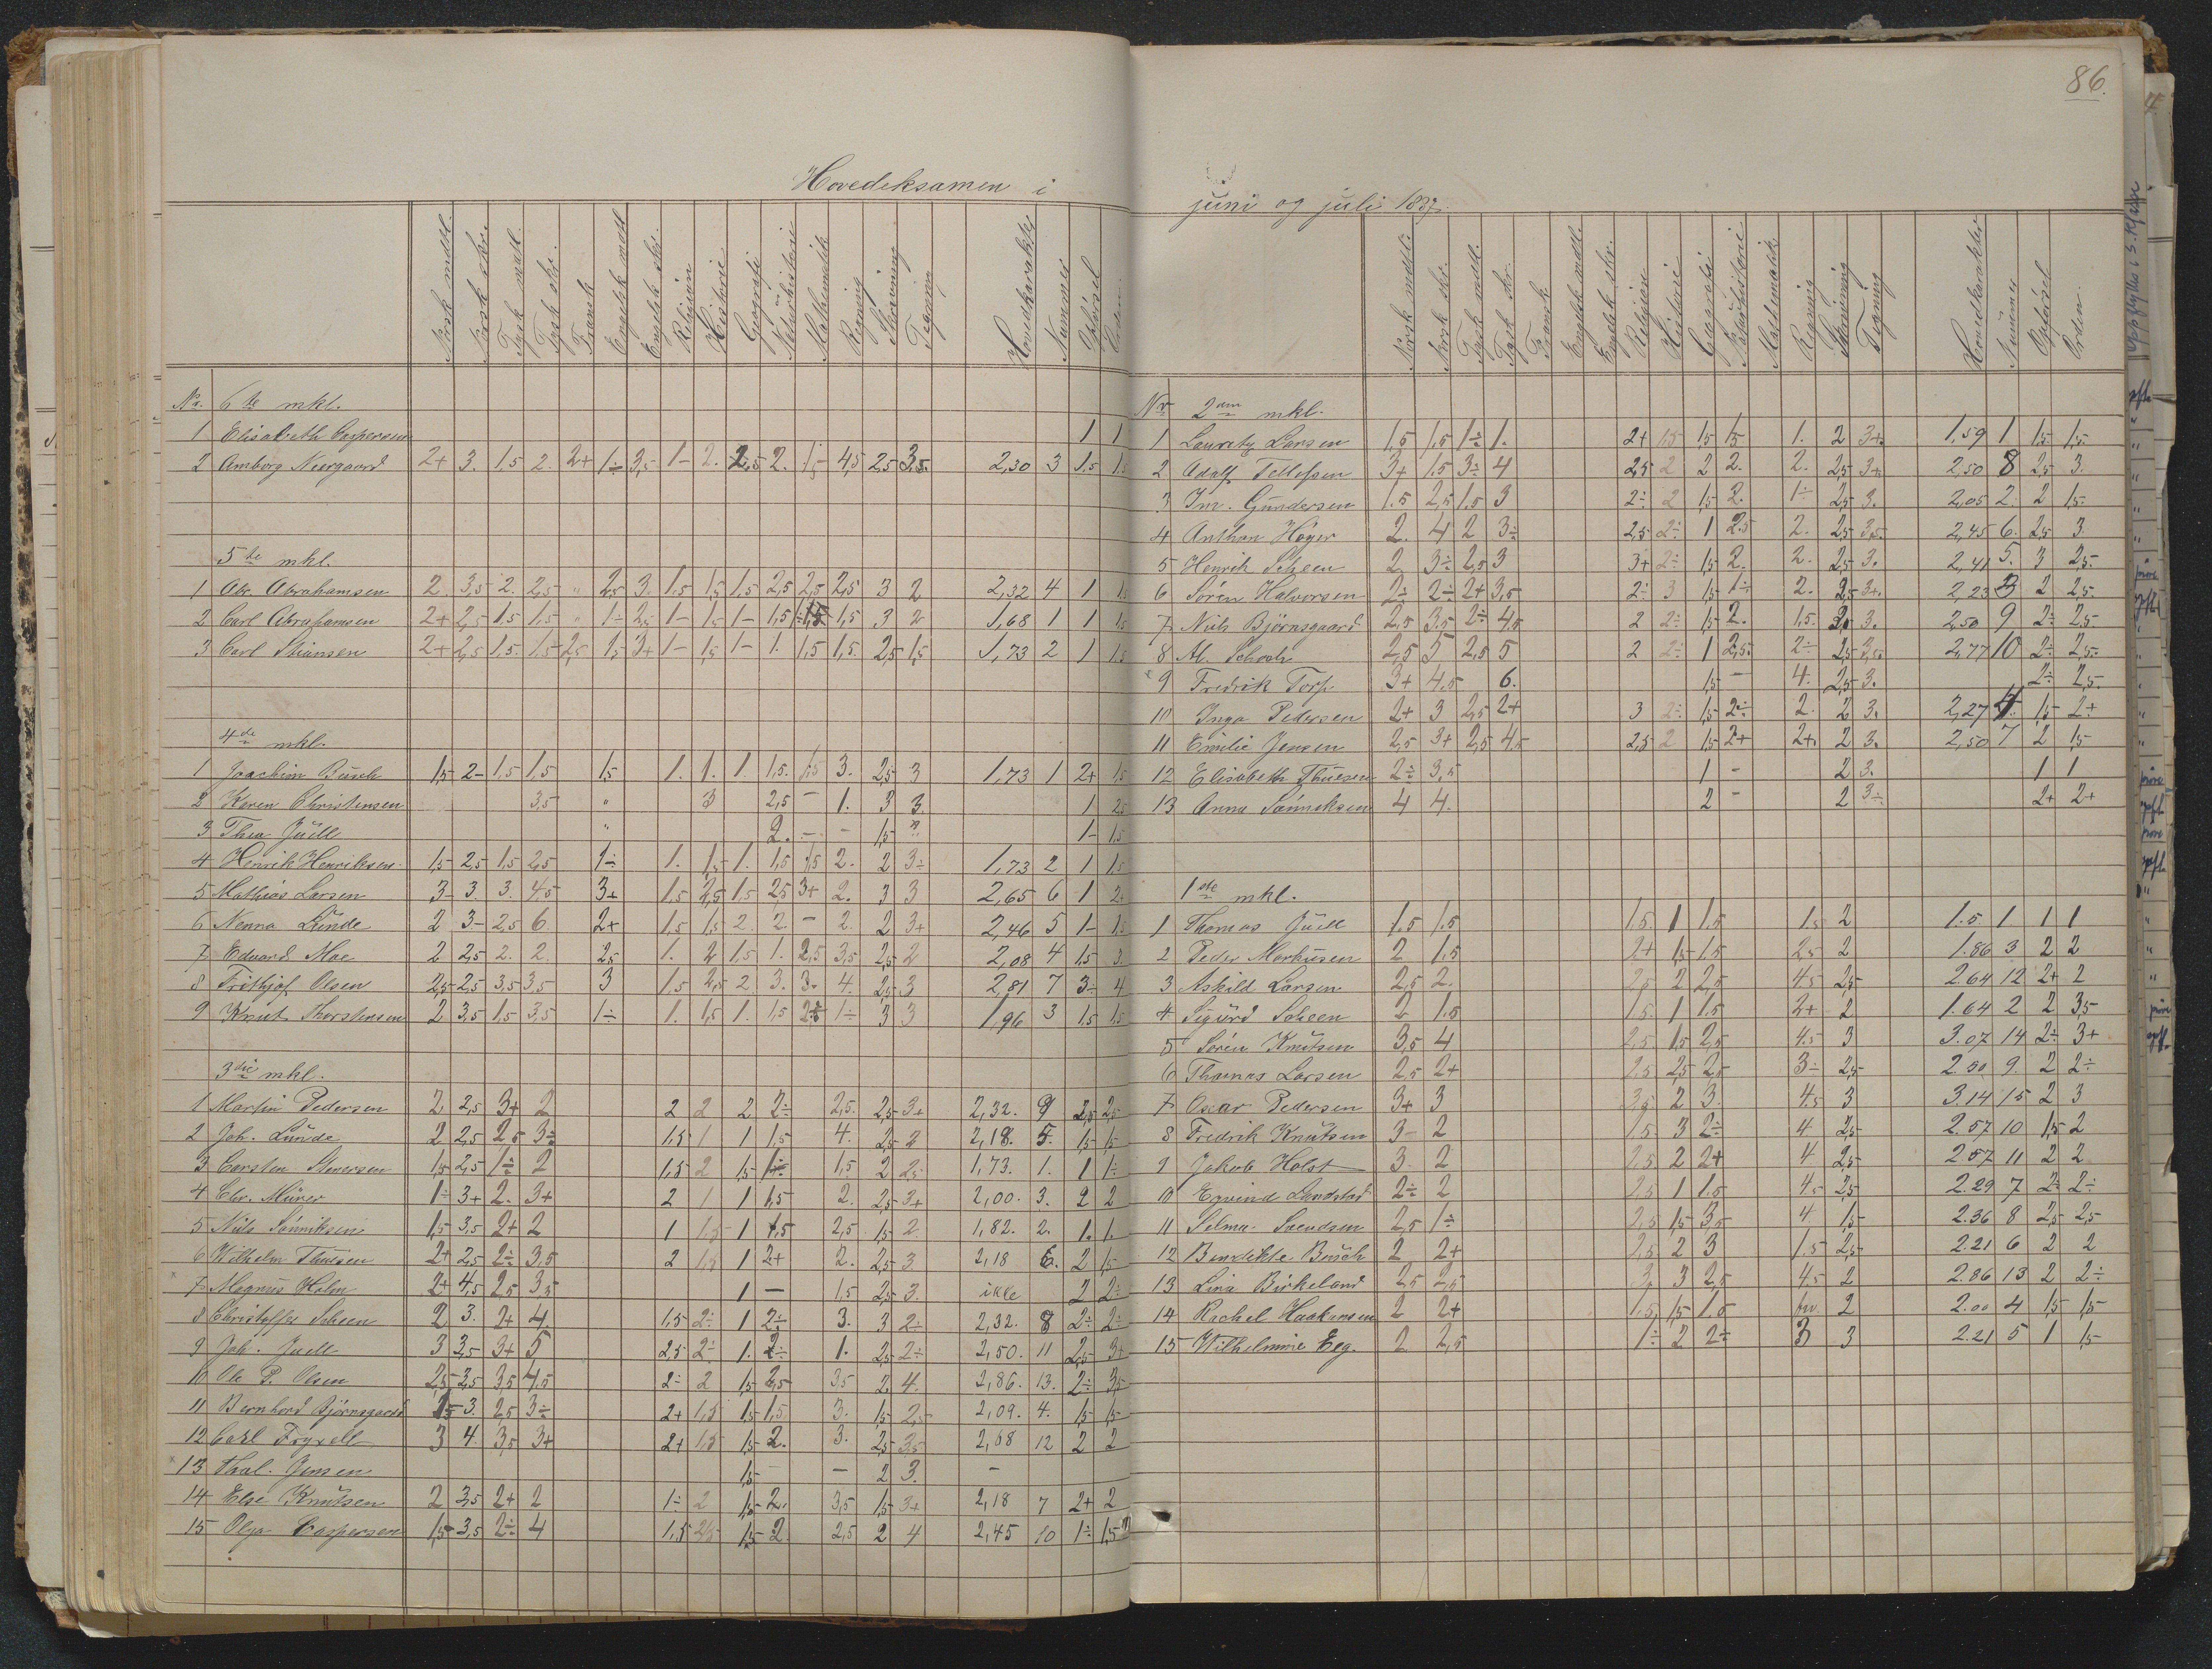 Hovedeksamen i
Norsk mdtl. Norsk skr. Tysk mdtl. Tysk skr. Fransk Engelsk mdtl Engelsk skr. Religion Historie Geografi Naturhistorie Mathematik Regning Skrivning Tegning Hovedkarakter Nummer Opførsel Orden
Nr. 6te mkl.
1 Elisabeth Caspersen 1 1
2 Amborg Neergaard 2+ 3. 1.5 2. 2+ 1÷ 3,5 1- 2. 2,5 2. 4,5 2,5 3,5. 2,30 3 1.5 1.5
5te mkl.
1 Abr. Abrahamsen 2. 3,5 2. 2,5 " 2,5 3. 1.5 1,5 1,5 2,5 2,5 2,5 3 2 2,32 4 1 1.5
2 Carl Abrahamsen 2+ 2,5 1.5 1,5 " 1÷ 2,5 1- 1,5 1- 1,5 1,5 1,5 3 2 1,68 1 1 1.5
3 Carl Stiansen 2+ 2,5 1,5. 1.5 2,5 1,5 3+ 1- 1,5 1- 1. 1,5 1,5. 2,5 1,5 1,73 2 1 1.5
4de mkl.
1 Joachim Busch 1,5 2- 1,5 1,5 1,5 1. 1. 1. 1,5. 1,5 3. 2,5 3 1,73 1 2+ 1,5
2 Karen Christensen 3,5 " 3 2,5 - 1. 3 3. 1 2,5
3 Thea Juell " 2. - - 1,5 " 1- 1,5
4 Henrik Henriksen 1,5 2,5 1,5 2,5 1÷ 1. 1,5 1. 1,5 1,5 2. 2 3÷ 1,73 2 1 1.5
5 Mathias Larsen 3- 3. 3. 4,5 3+ 1,5 2,5 1,5 2,5 3+ 2. 3 3 2,65 6 1 2+
6 Nenna Lunde 2 3- 2,5 6. 2+ 1,5 1,5 2. 2. - 2. 2 3+ 2,46 5 1- 1.5
7 Edvard Moe 2 2,5 2. 2. 2,5 1. 2 1,5 1. 2,5 3,5 2,5 2 2,08 4 1,5 3
8 Frithjof Olsen 2,5 2,5 3,5 3,5 3 1,5 2,5 2. 3. 3. 4. 2,5 3 2,81 7 3- 4
9 Knut Thorstensen 2 3,5 1,5 3,5 1÷ 1. 1,5 1. 1,5 2÷ 1÷ 3 3 1,96 3 1,5 1,5
3die mkl.
1 Martin Pedersen 2 2,5 3+ 2 2 2 2 2÷ 2,5. 2,5 3+ 2,32. 9 2,5 2,5
2 Joh. Lunde 2 2,5 2,5 3÷ 1,5 1 1 1,5 4. 2,5 2 2,18. 5. 1,5 1,5
3 Carsten Stenersen 1,5 2,5 1÷ 2 1,5 2 1,5 1÷ 1,5 2 2,5 1,73. 1. 1 1÷
4 Chr. Mürer 1÷ 3+ 2. 3+ 2 1 1 1,5 2. 2,5 3+ 2,00. 3. 2 2
5 Nils Sønniksen 1,5 3,5 2+ 2 1 1.5 1 1,5 2,5 1,5 2 1,82. 2. 1. 1.
6 Wilhelm Thuesen 2+ 2,5 2÷ 3,5 2 1,5 1 2+ 2. 2,5 3 2,18 6. 2 1,5
7 Magnus Holm 2+ 4,5 2,5 3,5 1 - 1,5 2,5 3. ikke 2 2÷
8 Christoffer Scheen 2 3. 2+ 4. 1,5 2÷ 1 2÷ 3. 3 2÷ 2,32. 8 2÷ 2÷
9 Joh. Juell 3 3,5 3+ 5 2,5 2÷ 1. 2÷ 1. 2,5 2÷ 2,50. 11 2,5 3+
10 Ole P. Olsen 2,5 3,5 3,5 4,5 2÷ 2 1,5 2,5 3,5 2. 4. 2,86. 13. 2÷ 3,5
11 Bernhard Bjørnsgaard 1,5 3. 2,5 3÷ 2+ 1,5 1,5 1,5 3. 1,5 2,5 2,09. 4. 1,5 1,5
12 Carl Fryxell 3 4. 3,5 3+ 2+ 1,5 1,5 2. 3. 2,5 3,5 2,68 12 2 2
13 Thal. Jensen 1,5 - - 2 3. -
14 Else Knutsen 2 3,5 2+ 2 1÷ 2 1,5 2. 3,5 1,5 3+ 2,18 7 2+ 2
15 Olga Caspersen 1,5 3,5 2÷ 4 1,5 2,5 1,5 2. 2,5 2 4 2,45 10 1÷ 1,5
86.
juni og juli 1887.
Norsk mdtl. Norsk skr. Tysk mdtl. Tysk skr. Fransk Engelsk mdtl. Engelsk skr. Religion Historie Geografi Naturhistorie Mathematik Regning Skrivning Tegning Hovedkarakter Nummer Opførsel Orden
Nr 2den mkl.
1 Lauritz Larsen 1,5 1,5 1÷ 1. 2+ 1,5 1,5 1,5 1. 2 3+. 1,59 1 1,5 1,5
2 Adolf Tellefsen 3+ 1.5 3÷ 4 2,5 2 2 2. 2. 2,5 3+ 2,50 8 2,5 3.
3 Im. Gundersen 1.5 2,5 1.5 3 2÷ 2 1,5 2. 1÷ 2,5 3. 2,05 2. 2 1,5
4 Anthon Høyer 2. 4 2 3÷ 2,5 2÷ 1 2.5 2. 2,5 3,5. 2,45 6. 2,5 3
5 Henrik Scheen 2 3÷ 2,5 3 3+ 2÷ 1,5 2. 2. 2,5 3. 2,41 5. 3 2,5.
6 Søren Halvorsen 2÷ 2÷ 2+ 3,5 2÷ 3 1,5 1÷ 2. 2,5 3+. 2,23 3 2 2,5
7 Niels Bjørnsgaard 2,5 3,5 2÷ 4,5 2 2÷ 1,5 2. 1,5. 3. 2,50 9 2÷ 2,5
8 Al. Schoch 2,5 5 2,5 5 2 2÷ 1 2,5. 2÷ 2,5 3,5. 2,77 10 2÷ 2,5.
9 Fredrik Torp. 3+ 4.5 6. 1,5 - 4. 2,5 3. 2÷ 2,5.
10 Inga Pedersen 2+ 3 2,5 2+ 3 2÷ 1,5 2÷ 2. 2 3. 2,27 4. 1,5 2+
11 Emilie Jensen 2,5 3+ 2,5 4,5 2,5 2 1,5 2+ 2+. 2 3. 2,50 7 2 1,5
12 Elisabeth Thuesen 2÷ 3,5 1 - 2 3. 1 1
13 Anna Sønniksen 4 4. 2 - 2 3÷ 2+ 2+
1ste mkl.
1 Thomas Juell 1.5 1.5 1.5. 1 1.5 1.5 2 1.5 1 1 1
2 Peder Markusen 2 1.5 2+ 1,5 1.5 2,5 2 1.86 3 2 2
3 Askild Larsen 2,5 2. 2,5 2 2,5 4.5 2,5 2.64 12 2+ 2
4 Sigurd Scheen 2 1.5 1.5. 1 1.5 2+ 2 1.64 2 2 3,5
5 Søren Knutsen 3,5 4 2,5. 1,5 2,5 4.5 3 3.07 14 2÷ 3+
6 Thomas Larsen 2,5 2+ 2,5 2,5 2,5 3÷ 2,5 9. 2 2÷
7 Oscar Pedersen 3+ 3 3,5 2 3. 4.5 3 3.14 15 2 3
8 Fredrik Knutsen 3- 2 1.5 3 2÷ 4 2,5 2.57 10 1,5 2
9 Jakob Holst 3. 2 2,5 2 2+ 4 2,5 2.57 11 2 2
10 Eyvind Lundstad 2÷ 2 2,5 1 1.5 4.5 2,5 2.29 7 2÷ 2÷
11 Selma Svendsen 2,5 1÷ 2,5 1,5 3,5 4 1,5 2.36 8 2,5 2,5
12 Bendikte Busch 2 2+ 2,5 2 3 1.5 2,5 2.21 6 2 2
13 Lina Birkeland 2,5 2,5 3, 3 2,5 4.5 2 2.86 13 2 2÷
14 Rachel Haakonsen 2 2+ 1.5, 1,5 1.5 2 2.00 4 1,5 1,5
15 Wilhelmine Eeg. 2 2,5 1÷ 2 2÷ 3 3 2.21 5 1 1,5